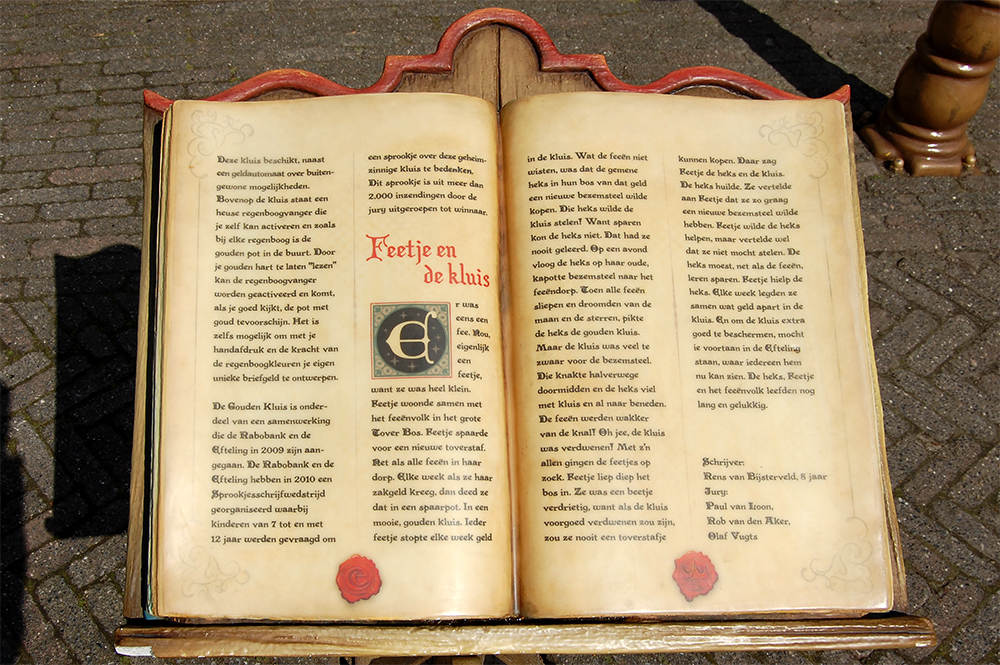 Deze kluis beschikt, naast
een geldautomaat over buiten-
gewone mogelijkheden.
Bovenop de kluis staat een
heuse regenboogvanger die
je zelf kan activeren en zoals
bij elke regenboog is de
gouden pot in de buurt. Door
je gouden hart te laten "lezen"
kan de regenboogvanger
worden geactiveerd en komt,
als je goed kijkt, de pot met
goud tevoorschijn. Het is
zelfs mogelijk om met je
handafdruk en de kracht van
de regenboogkleuren je eigen
unieke briefgeld te ontwerpen.
De Gouden Kluis is onder-
deel van een samenwerking
die de Rabobank en de
Efteling in 2009 zijn aan-
gegaan. De Rabobank en de
Efteling hebben in 2010 een
Sprookjesschrijfwedstrijd
georganiseerd waarbij
kinderen van 7 tot en met
12 jaar werden gevraagd om
een sprookje over deze geheim-
zinnige kluis te bedenken.
Dit sprookje is uit meer dan
2.000 inzendingen door de
jury uitgeroepen tot winnaar.
Feetje en
de kluis
Er was
eens een
fee. Nou,
eigenlijk
een
feetje,
want ze was heel klein.
Feetje woonde samen met
het feeënvolk in het grote
Tover Bos. Feetje spaarde
voor een nieuwe toverstaf.
Net als alle feeën in haar
dorp. Elke week als ze haar
zakgeld kreeg, dan deed ze
dat in een spaarpot. In een
mooie, gouden kluis. Ieder
feetje stopte elke week geld
in de kluis. Wat de feeën niet
wisten, was dat de gemene
heks in hun bos van dat geld
een nieuwe bezemsteel wilde
kopen. Die heks wilde de
kluis stelen! Want sparen
kon de heks niet. Dat had ze
nooit geleerd. Op een avond
vloog de heks op haar oude,
kapotte bezemsteel naar het
feeëndorp. Toen alle feeën
sliepen en droomden van de
maan en de sterren, pikte
de heks de gouden kluis.
Maar de kluis was veel te
zwaar voor de bezemsteel.
Die knakte halverwege
doormidden en de heks viel
met kluis en al naar beneden.
De feeën werden wakker
van de knal! Oh jee, de kluis
was verdwenen! Met z'n
allen gingen de feetjes op
zoek. Feetje liep diep het
bos in. Ze was een beetje
verdrietig, want als de kluis
voorgoed verdwenen zou zijn,
zou ze nooit een toverstafje
kunnen kopen. Daar zag
Feetje de heks en de kluis.
De heks huilde. Ze vertelde
aan Feetje dat ze zo graag
een nieuwe bezemsteel wilde
hebben. Feetje wilde de heks
helpen, maar vertelde wel
dat ze niet mocht stelen. De
heks moest, net als de feeën,
leren sparen. Feetje hielp de
heks. Elke week legden ze
samen wat geld apart in de
kluis. En om de kluis extra
goed te beschermen, mocht
ie voortaan in de Efteling
staan, waar iedereen hem
nu kan zien. De heks, Feetje
en het feeënvolk leefden nog
lang en gelukkig.
Schrijver:
Rens van Bijsterveld, 8 jaar
Jury:
Paul van Loon,
Rob van den Aker,
Olaf Vugts